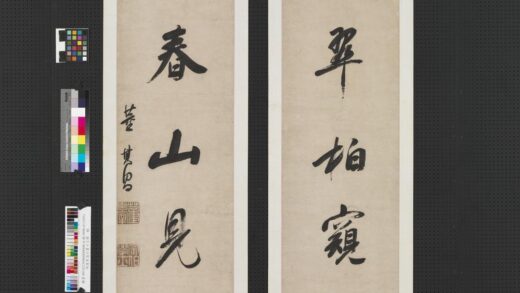 翠柏窺
春山見
董其昌